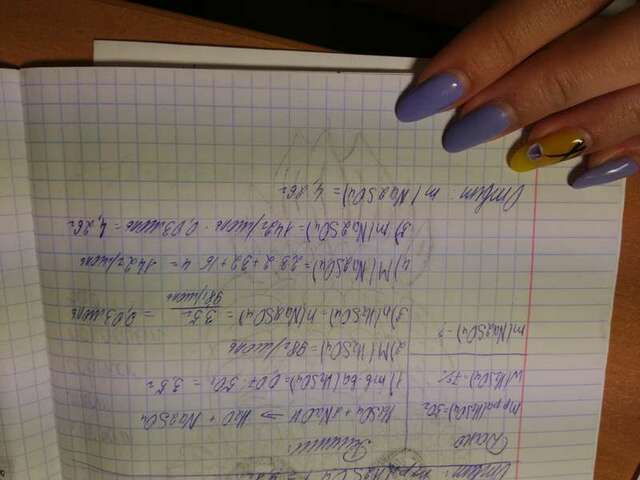 Дано
Решение:
mр-ра(H2SO4)-50г
w(H2SO4)-7%
m(Na2SO4)-?
H2SO4 + 2NaOH → H2O + Na2SO4
1) m в-ва(H2SO4)=0,07·50г = 3,5г
2) M(H2SO4)=98г/моль
3) n(H2SO4)-n(Na2SO4) = 3,5г / 98г/моль = 0,03моль
4) M(Na2SO4)=23·2+32+16·4 = 142г/моль
5) m(Na2SO4)=142г/моль · 0,03моль = 4,26г
Ответ: m(Na2SO4) = 4,26г